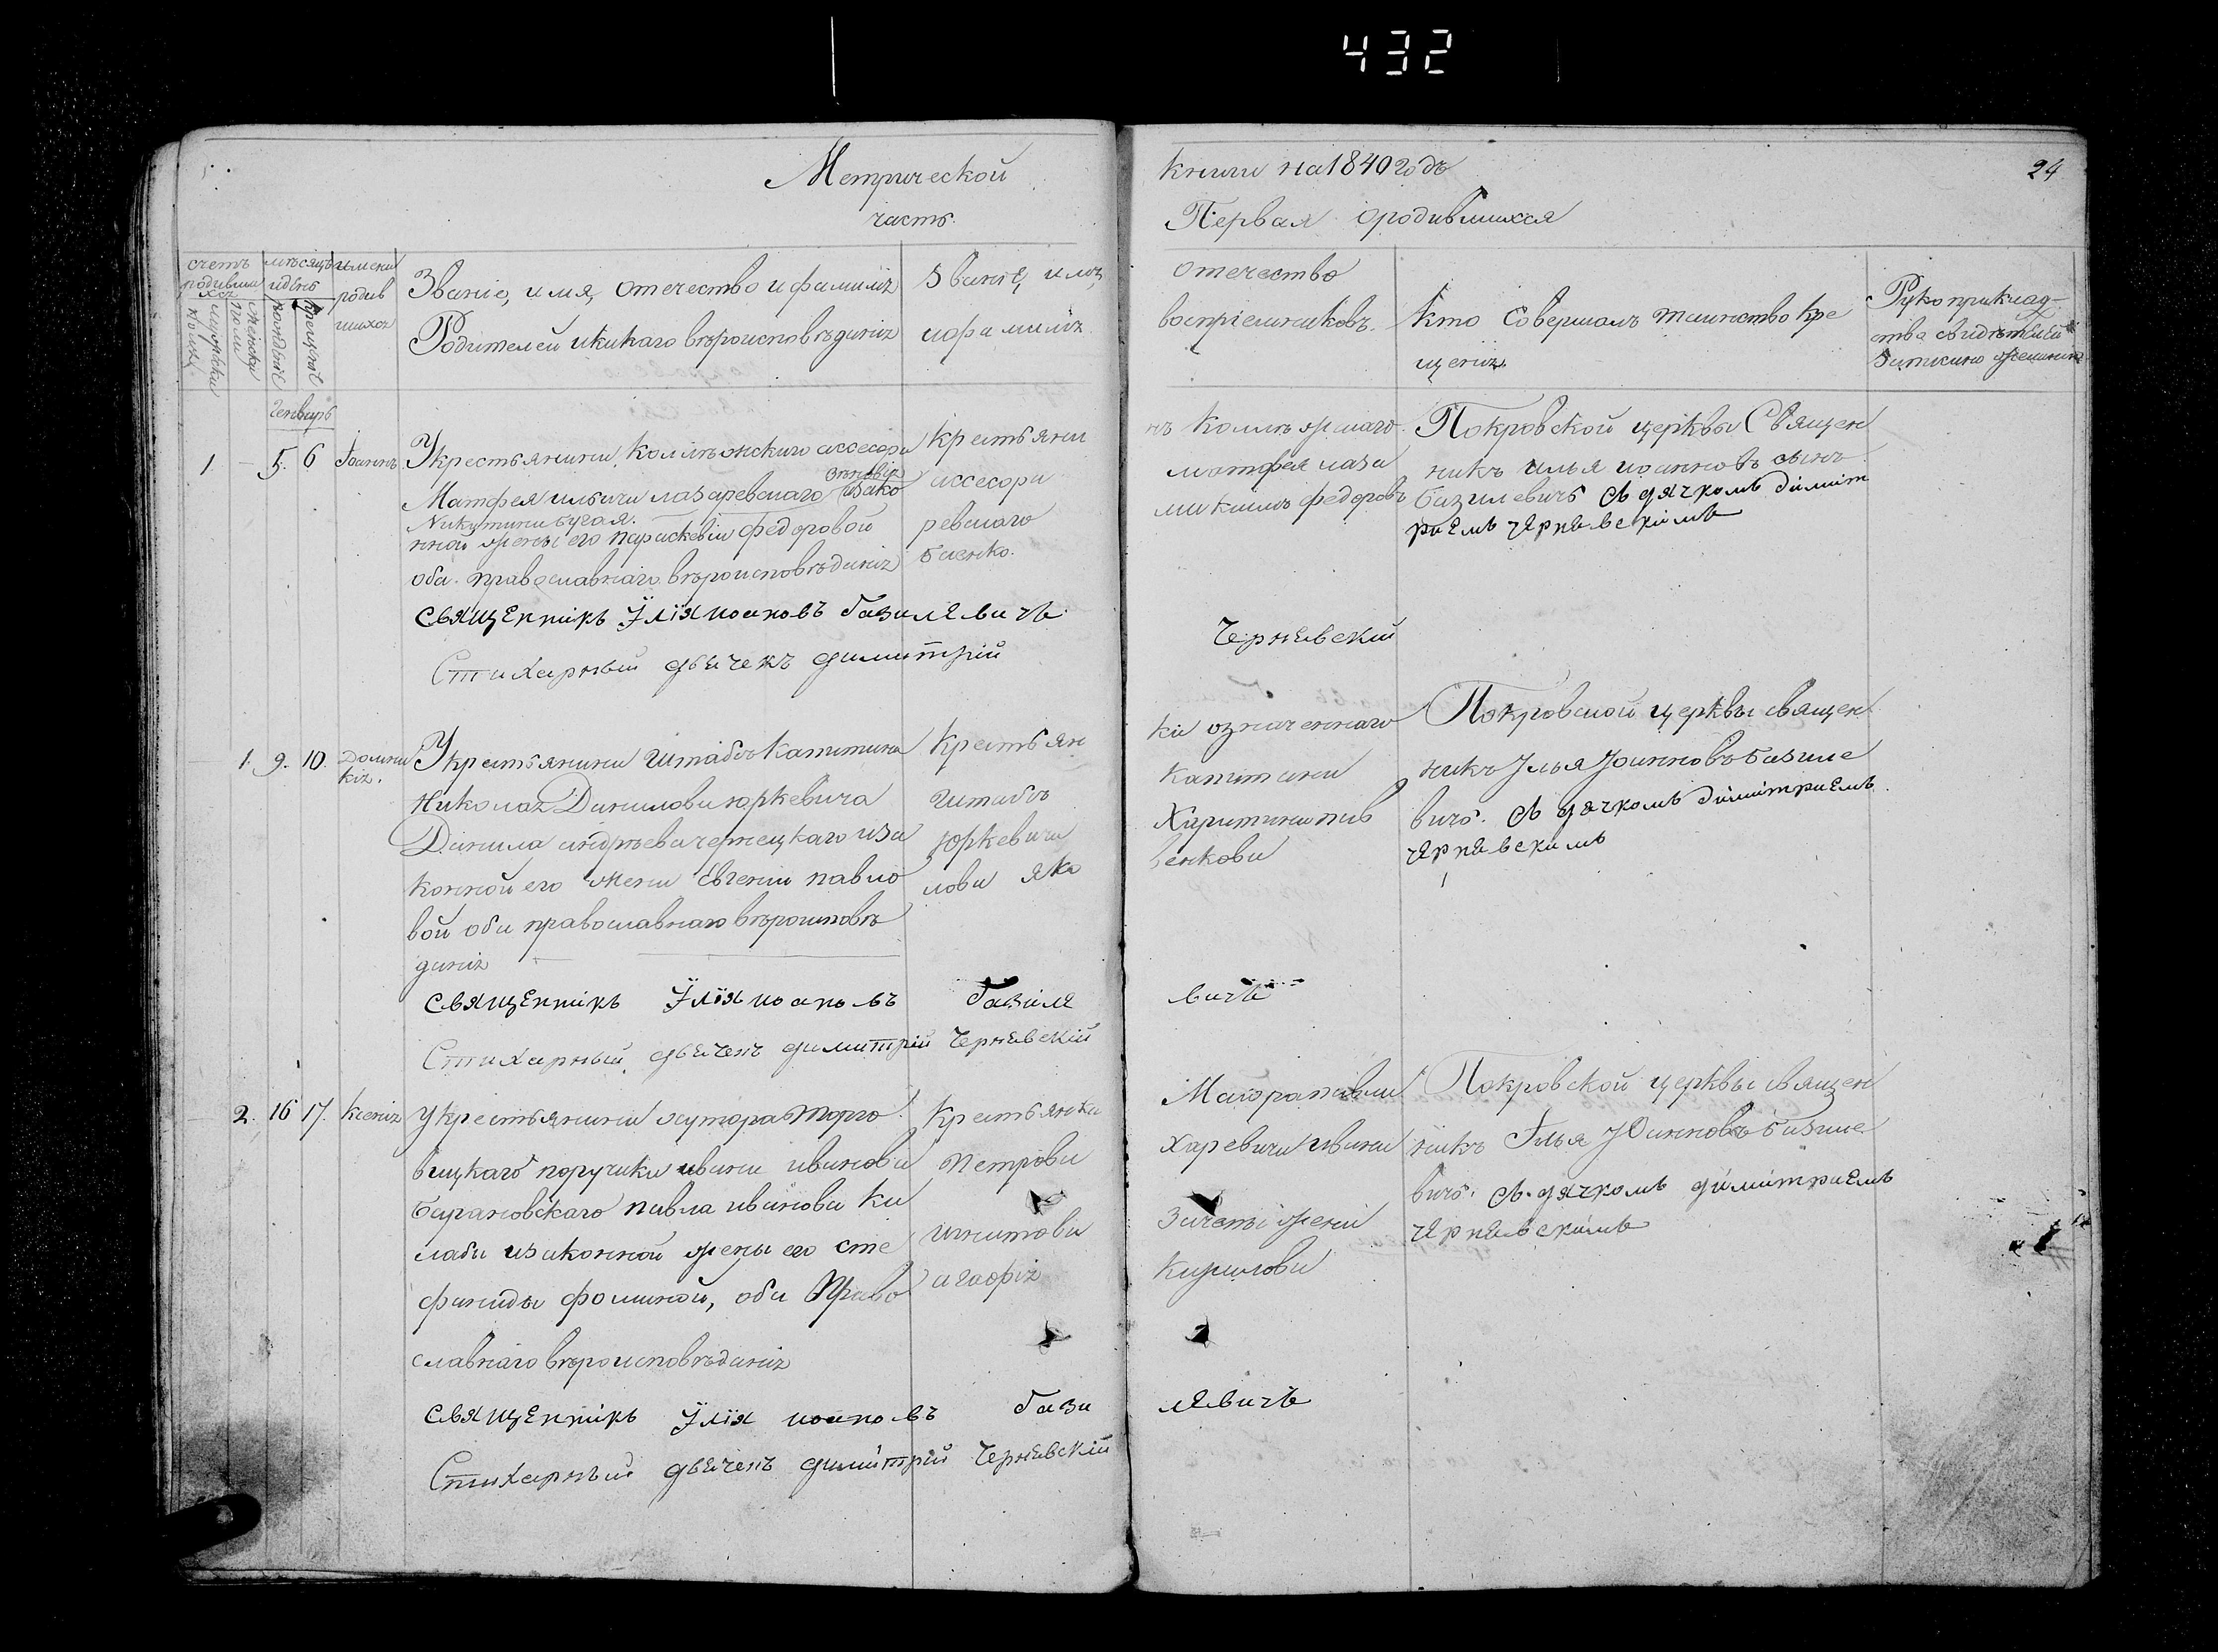 432
Метрической
часть.
книги на 1840 годъ
24
Первая о родившихся
счетъ родивши хся
мѣсяцъ и день
имена родив шихся
Званіе, имя, отечество и фамилія
Родителей и какаго вѣроисповѣданія
Званіе, имя,
и фамилія
отечество
воспріемниковъ.
Кто совершалъ таинство кре
щенія
Рукоприклад-
ства свидѣтелей
Генварь
1. - 5. 6 Іоаннъ
У крестьянина Коллѣжскаго ассесора
Матфея ильича лазаревскаго Зѣновія изако
Никитина бугая.
нной жены его параскевіи Федоровой
оба православнаго вѣроисповѣданія
крестьяни
ассесора
ревскаго
баенко.
нъ Коллѣжскаго
матфея лаза
микита федоровъ
Покровской церквы Священ
никъ илья иоанновъ сынъ
базилевичъ съ дячкомъ диміт
риемъ чернявскимъ
священникъ Ілія иоановъ базилевичъ
Стихарный дьячекъ димитрій
Чернявскій
1. 9. 10. Домни кія.
У крестьянина Штабсъ Капитана
Николая Данилова юркевича
Данила андрѣева чернецкаго иза
конной его жены Евгении павло
вой оба православнаго вѣроисповѣ
данія
Крестьян
Штабсъ
юркевича
лова яко
ка означеннаго
капитана
Харитина пав
венкова
Покровской церквы священ
никъ Илья Иоанновъ базиле
вичъ. съ дячкомъ димитриемъ
чернявскимъ
священникъ Ілія иоановъ базиле
вичъ
Стихарный дьячекъ димитрій Чернявскій
2. 16 17. Ксенія
У крестьянина хутора Торго
вицкаго поручика ивана иванова
барановскаго павла иванова Ка
лаба изаконной жены его сте
фаниды фоминой, оба Право
славнаго вѣроисповѣданія
Крестьянка
Петрова
игнатова
агафія
Маіора павла
Харевича ивана
жена
Кирилова
Покровской церквы священ
никъ Илья Иоанновъ базиле
вичъ. съ дячкомъ димитриемъ
чернявскимъ
священникъ Ілія иоановъ бази
левичъ
Стихарный дьячекъ димитрій Чернявскій